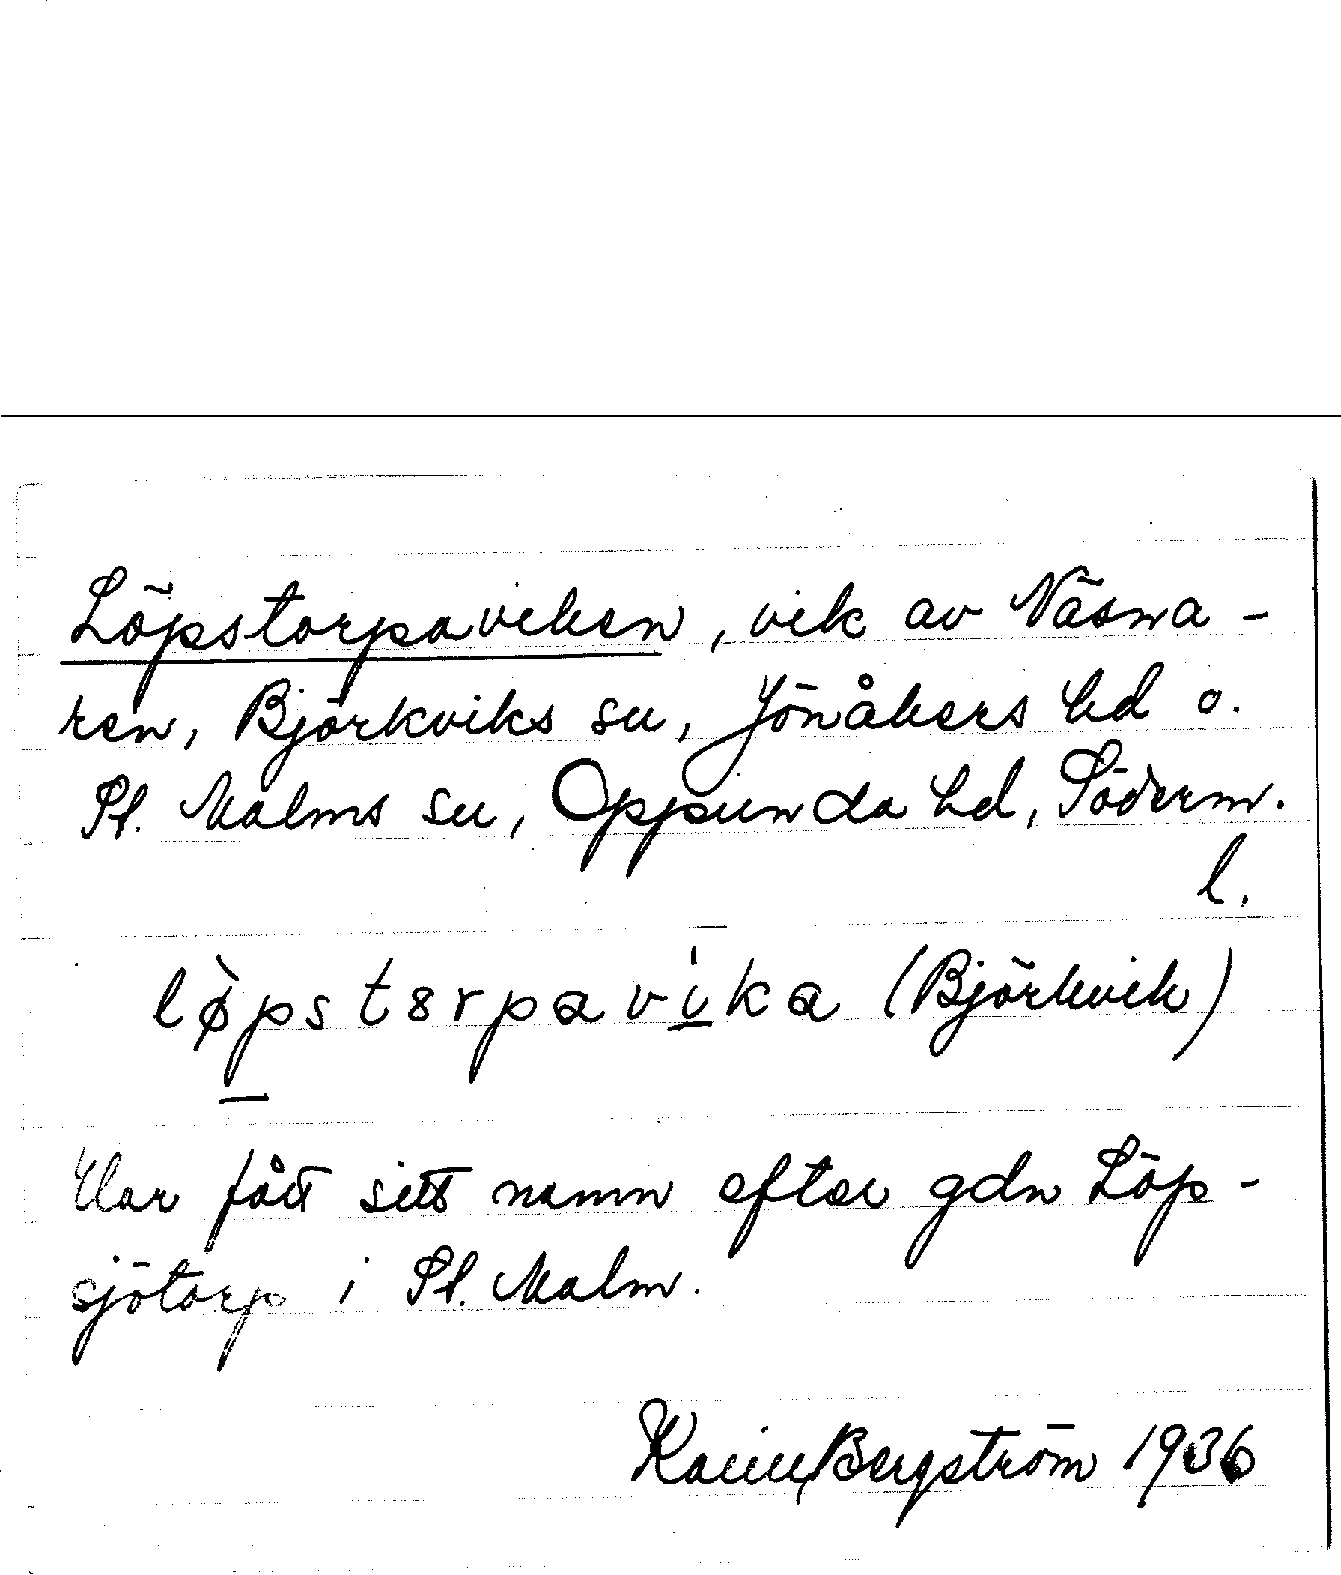 Löpstorpaviken, vik av Näsna-
ren, Björkviks sn, Jönåkers hd o.
St. Malms sn, Oppunda hd, Söderm.
l.
lø̀pstɜrpavi̲̍ka (Björkvik)
Har fått sitt namn efter gdn Löp-
sjötorp i St. Malm.
Karin Bergström 1936